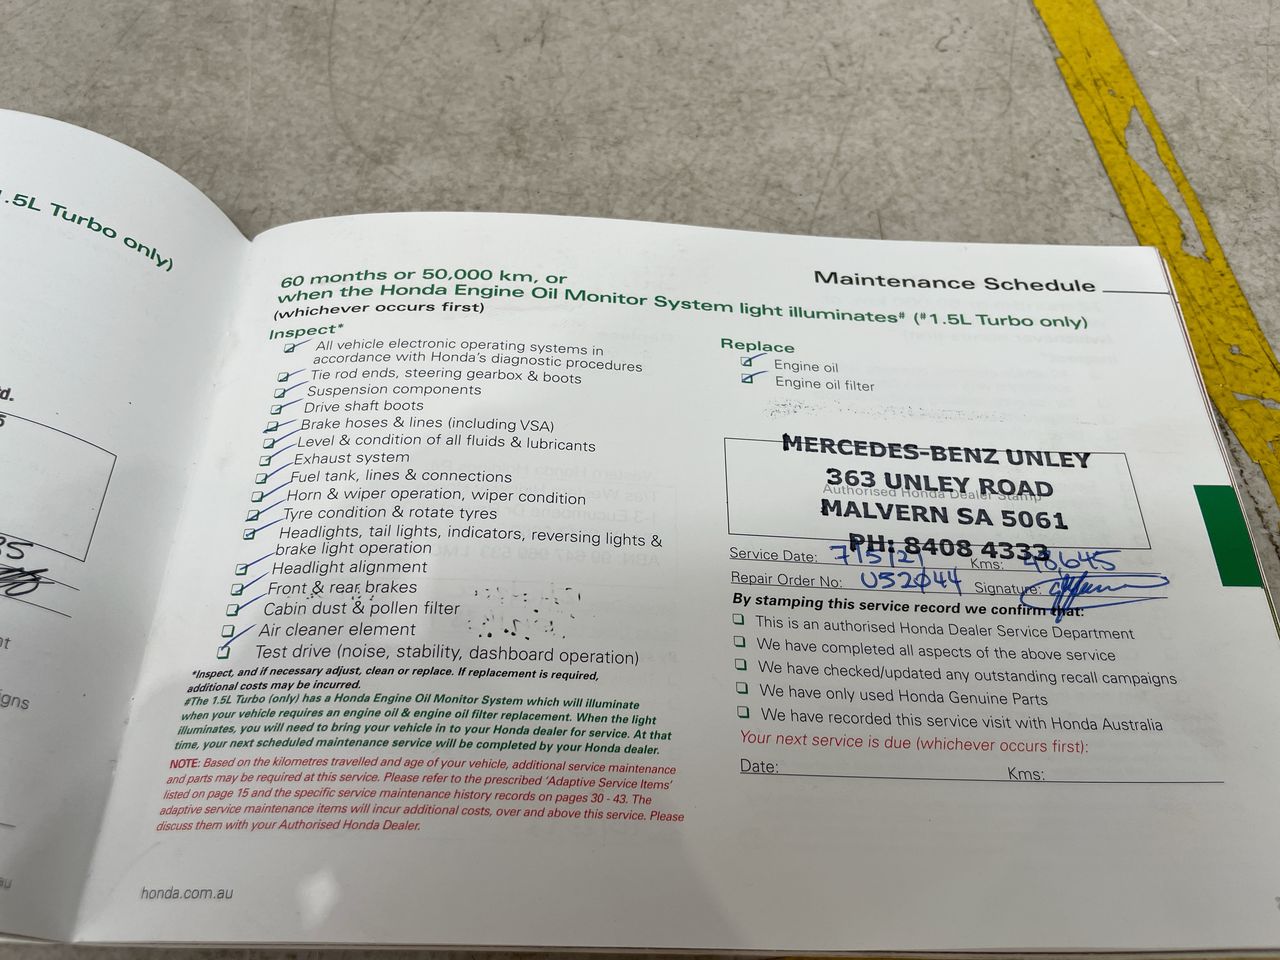 .5L Turbo only)
Maintenance Schedule
60 months or 50,000 km, or
when the Honda Engine Oil Monitor System light illuminates# (#1.5L Turbo only)
(whichever occurs first)
Inspect*
All vehicle electronic operating systems in
accordance with Honda's diagnostic procedures
Tie rod ends, steering gearbox & boots
Suspension components
Drive shaft boots
Brake hoses & lines (including VSA)
Level & condition of all fluids & lubricants
Exhaust system
Fuel tank, lines & connections
Horn & wiper operation, wiper condition
Tyre condition & rotate tyres
Headlights, tail lights, indicators, reversing lights &
brake light operation
Headlight alignment
Front & rear brakes
Cabin dust & pollen filter
Air cleaner element
Test drive (noise, stability, dashboard operation)
*Inspect, and if necessary adjust, clean or replace. If replacement is required,
additional costs may be incurred.
#The 1.5L Turbo (only) has a Honda Engine Oil Monitor System which will illuminate
when your vehicle requires an engine oil & engine oil filter replacement. When the light
illuminates, you will need to bring your vehicle in to your Honda dealer for service. At that
time, your next scheduled maintenance service will be completed by your Honda dealer.
NOTE: Based on the kilometres travelled and age of your vehicle, additional service maintenance
and parts may be required at this service. Please refer to the prescribed 'Adaptive Service Items'
listed on page 15 and the specific service maintenance history records on pages 30 - 43. The
adaptive service maintenance items will incur additional costs, over and above this service. Please
discuss them with your Authorised Honda Dealer.
honda.com.au
Replace
Engine oil
Engine oil filter
MERCEDES-BENZ UNLEY
363 UNLEY ROAD
Authorised Honda Dealer Stamp
MALVERN SA 5061
PH: 8408 4333
Service Date: 7/5/21 Kms: 48,645
Repair Order No: U52044 Signature:
By stamping this service record we confirm that:
This is an authorised Honda Dealer Service Department
We have completed all aspects of the above service
We have checked/updated any outstanding recall campaigns
We have only used Honda Genuine Parts
We have recorded this service visit with Honda Australia
Your next service is due (whichever occurs first):
Date: Kms: